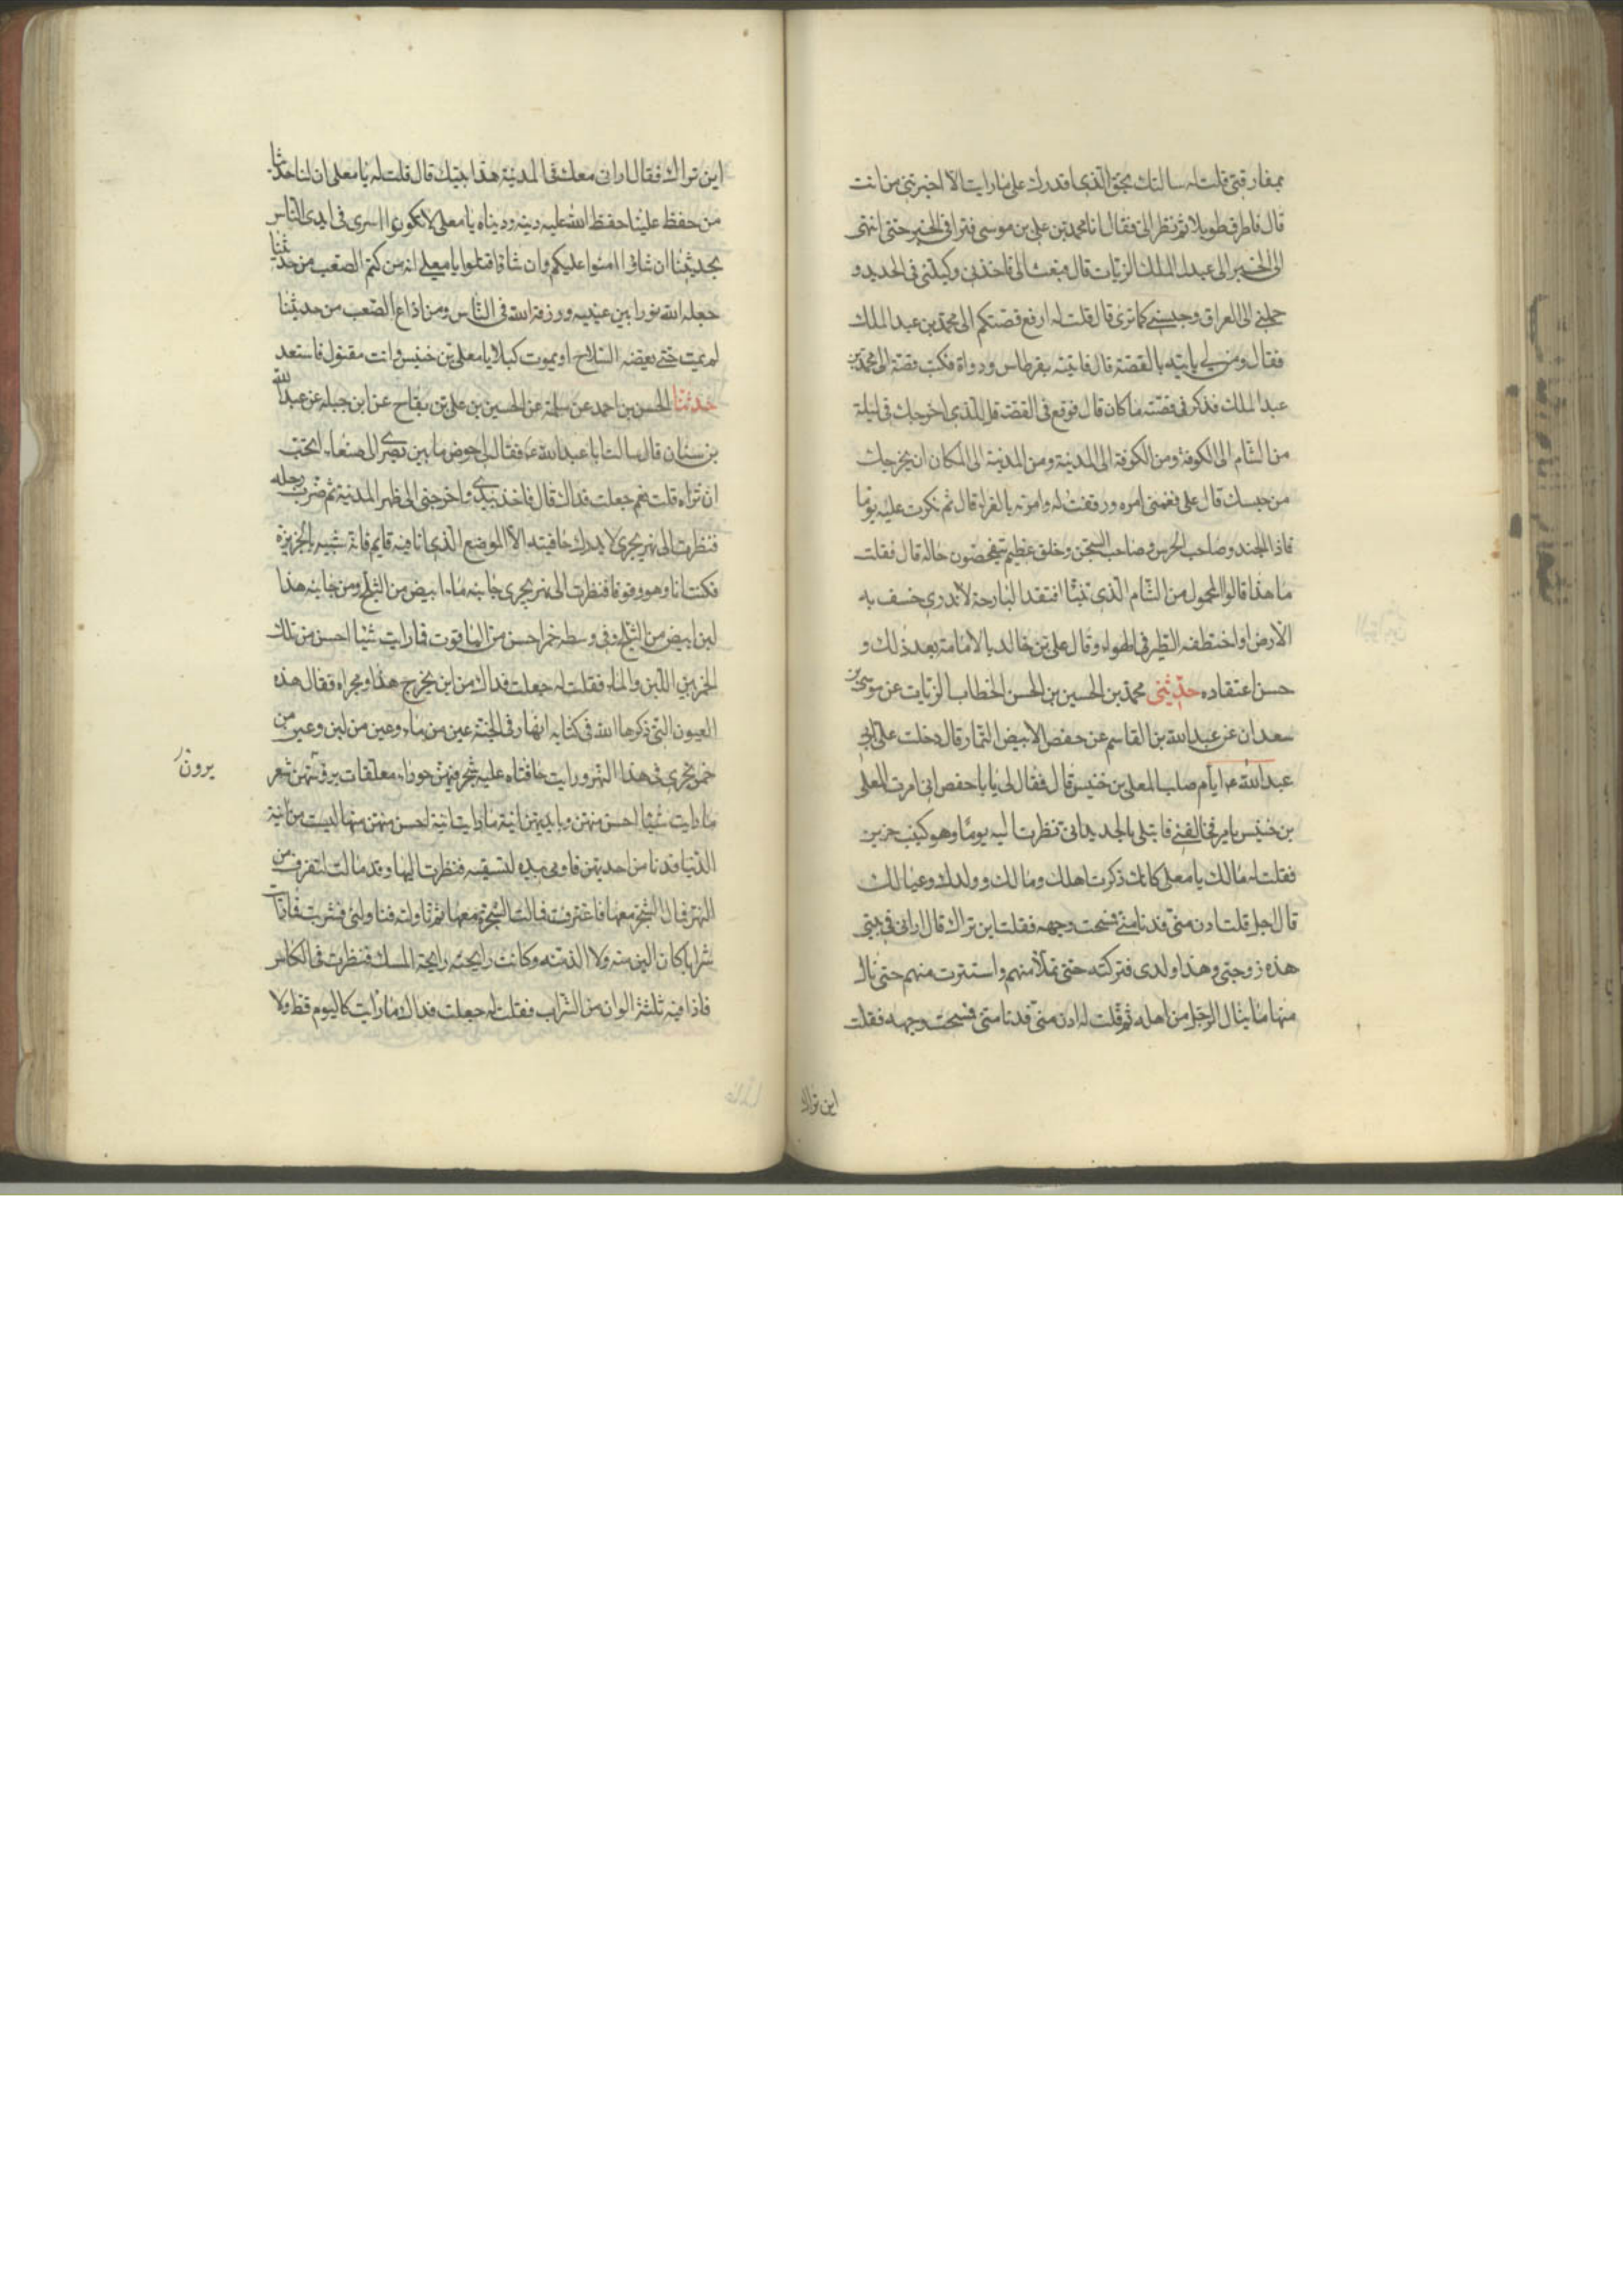 بمفارقتى قلت له سالتك بحق الذى اقدرك على ما رايت الا اخبرتنى من انت
قال فاطرق طويلا ثم نظر الىّ فقال انا محمد بن على بن موسى فتراقى الخبر حتى انتهى
الى الخبر الى عبد الملك الزيات قال فبعث الى فاخذنى وكبلنى فى الحديد و
حملنى الى العراق وحبسنى كما ترى قال قلت له ارفع قصتكم الى محمد بن عبد الملك
فقال ومن لى ياتيه بالقصة قال فاتيته بقرطاس ودواة فكتب قصة الى محمد بن
عبد الملك فذكر فى قصته ما كان قال فوقع فى القصة قل للذى اخرجك فى ليلة
من الشام الى الكوفة ومن الكوفة الى المدينة ومن المدينة الى المكان ان يخرجك
من حبسك قال على فغمنى امره ورققت له وامرته بالعزاء قال ثم بكرت عليه يوما
فاذا الجند وصاحب الحرس وصاحب السجن وخلق عظيم يتفحصون حاله قال فقلت
ما هذا قالوا المحمول من الشام الذى تنبّا افتقد البارحة لا ندرى خسف به
الارض او اختطفه الطير فى الهواء وقال على بن خالد بالامامة بعد ذلك و
حسن اعتقاده حدثنى محمد بن الحسين بن الحسن الخطاب الزيات عن موسى بن
سعدان عن عبد الله بن القاسم عن حفص الابيض التمار قال دخلت على ابى
عبد الله ع ايام صلب المعلى بن خنيس قال فقال لى يا با حفص انى امرت المعلى
بن خنيس بامر فخالفنى فابتلى بالحديد انى نظرت اليه يوما وهو كئيب حزين
فقلت له مالك يا معلى كانك ذكرت اهلك ومالك وولدك وعيالك
قال اجل قلت ادن منى فدنا منى فمسحت وجهه فقلت اين تراك قال ارانى فى بيتى
هذه زوجتى وهذا ولدى فتركته حتى تملأ منهم واستترت منهم حتى نال
منها ما ينال الرجل من اهله ثم قلت له ادن منى فدنا منى فمسحت وجهه فقلت
اين تراك
اين تراك فقال ارانى معك فى المدينة هذا بيتك قال قلت له يا معلى ان لنا حديثا
من حفظ علينا حفظ الله عليه دينه ودنياه يا معلى لا تكونوا اسرى فى ايدى الناس
بحديثنا ان شاؤا امنوا عليكم وان شاؤا قتلوا يا معلى انه من كتم الصعب من حديثنا
جعله الله نورا بين عينيه ورزقه الله فى الناس ومن اذاع الصعب من حديثنا
لم يمت حتى يعضه السلاح او يموت كبلا يا معلى بن خنيس وانت مقتول فاستعد
حدثنا الحسن بن احمد عن سلمة عن الحسين بن على بن بقاح عن ابن جبله عن عبد الله
بن سنان قال سالت ابا عبد الله ع فقال لى حوض ما بين بصرى الى صنعاء اتحب
ان تراه قلت نعم جعلت فداك قال فاخذ بيدى واخرجنى الى ظهر المدينة ثم ضرب رجله
فنظرت الى نهر يجرى لا يدرك حافيته الا الموضع الذى انا فيه قايم فانه شبيه بالجزيرة
فكنت انا وهو وقوفا فنظرت الى نهر يجرى جانبه ماء ابيض من الثلج ومن جانبه هذا
لبن ابيض من الثلج وفى وسطه خمر احسن من الياقوت فما رايت شيئا احسن من تلك
الخمر بين اللبن والماء فقلت له جعلت فداك من اين يخرج هذا ومجراه فقال هذه
العيون التى ذكرها الله فى كتابه انهار فى الجنة عين من ماء وعين من لبن وعين من
خمر تجرى فى هذا النهر ورايت حافتاه عليه شجر فيهن حوراء معلقات برؤسهن شعر
ما رايت شيئا احسن منهن وبايديهن انية ما رايت انية احسن منها ليست من انية
الدنيا فدنا من احديهن فاومى بيده لتسقيه فنظرت اليها وقد مالت لتغرف من
النهر فمال الشجر معها فاغترفت فمالت الشجرة معها ثم ناولته فناولنى فشربت فما رايت
شرابا كان الين منه ولا الذ منه وكانت رايحته رايحة المسك فنظرت فى الكاس
فاذا فيه ثلثة الوان من الشراب فقلت له جعلت فداك ما رايت كاليوم قط ولا